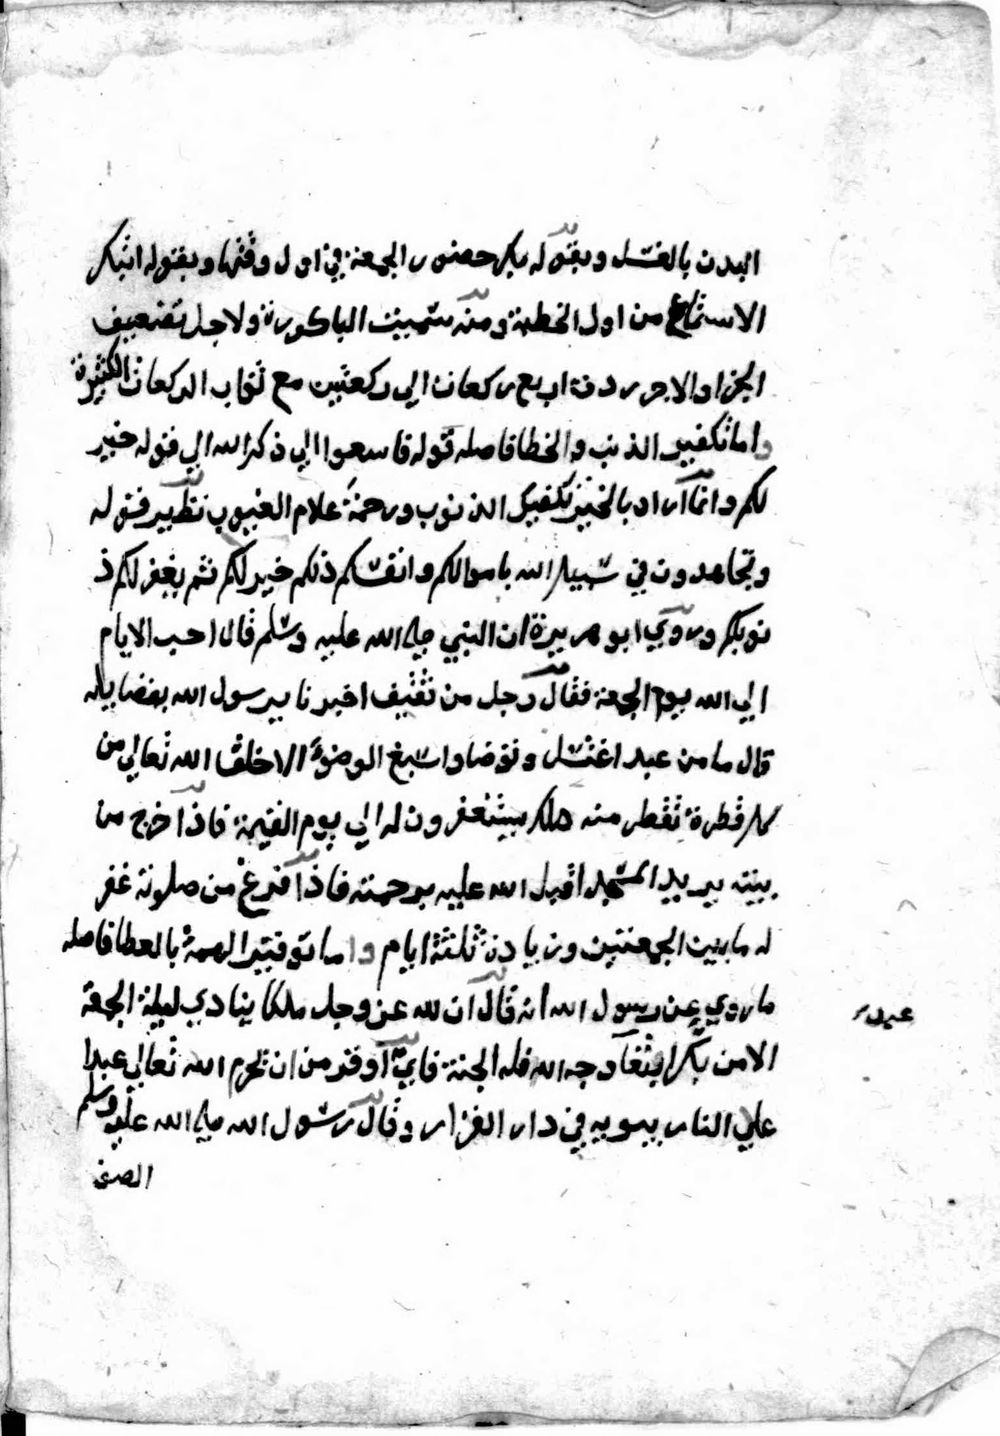 البدن بالغسل وبقوله بكر حضور الجمعة في اول وقتها وبقوله ابتكر
الاستماع من اول الخطبة ومنه سميت الباكورة ولاجل تضعيف
الجزاء والاجر ردت اربع ركعات الي ركعتين مع ثواب الركعات الكثيرة
واما تكفير الذنب والخطا فاصله قوله فاسعوا الي ذكر الله الي قوله خير
لكم وانما اراد بالخير تكفير الذنوب ورحمة علام الغيوب نظير قوله
وتجاهدون في سبيل الله باموالكم وانفسكم ذلكم خير لكم ثم يغفر لكم ذ
نوبكم وروي ابو هريرة ان النبي صلى الله عليه وسلم قال احب الايام
الي الله يوم الجمعة فقال رجل من ثقيف اخبرنا يرسول الله بفضايله
قال ما من عبد اغتسل وتوضا واسبغ الوضوء الا خلق الله تعالي من
كل قطرة تقطر منه ملك يستغفرون له الي يوم القيمة فاذا خرج من
بيته يريد المسجد اقبل الله عليه برحمته فاذا افرغ من صلوته غفر
له ما بين الجمعتين وزيادة ثلثة ايام واما توفير الهمة بالعطا فاصله
ما روي عن رسول الله انه قال ان لله عز وجل ملكا ينادي ليلة الجمعة
الا من بكر ابتغا وجه الله فله الجنة فاي اوفر من ان تحرم الله تعالي عبدا
علي النار يسويه في دار القرار وقال رسول الله صلى الله عليه وسلم
الصف